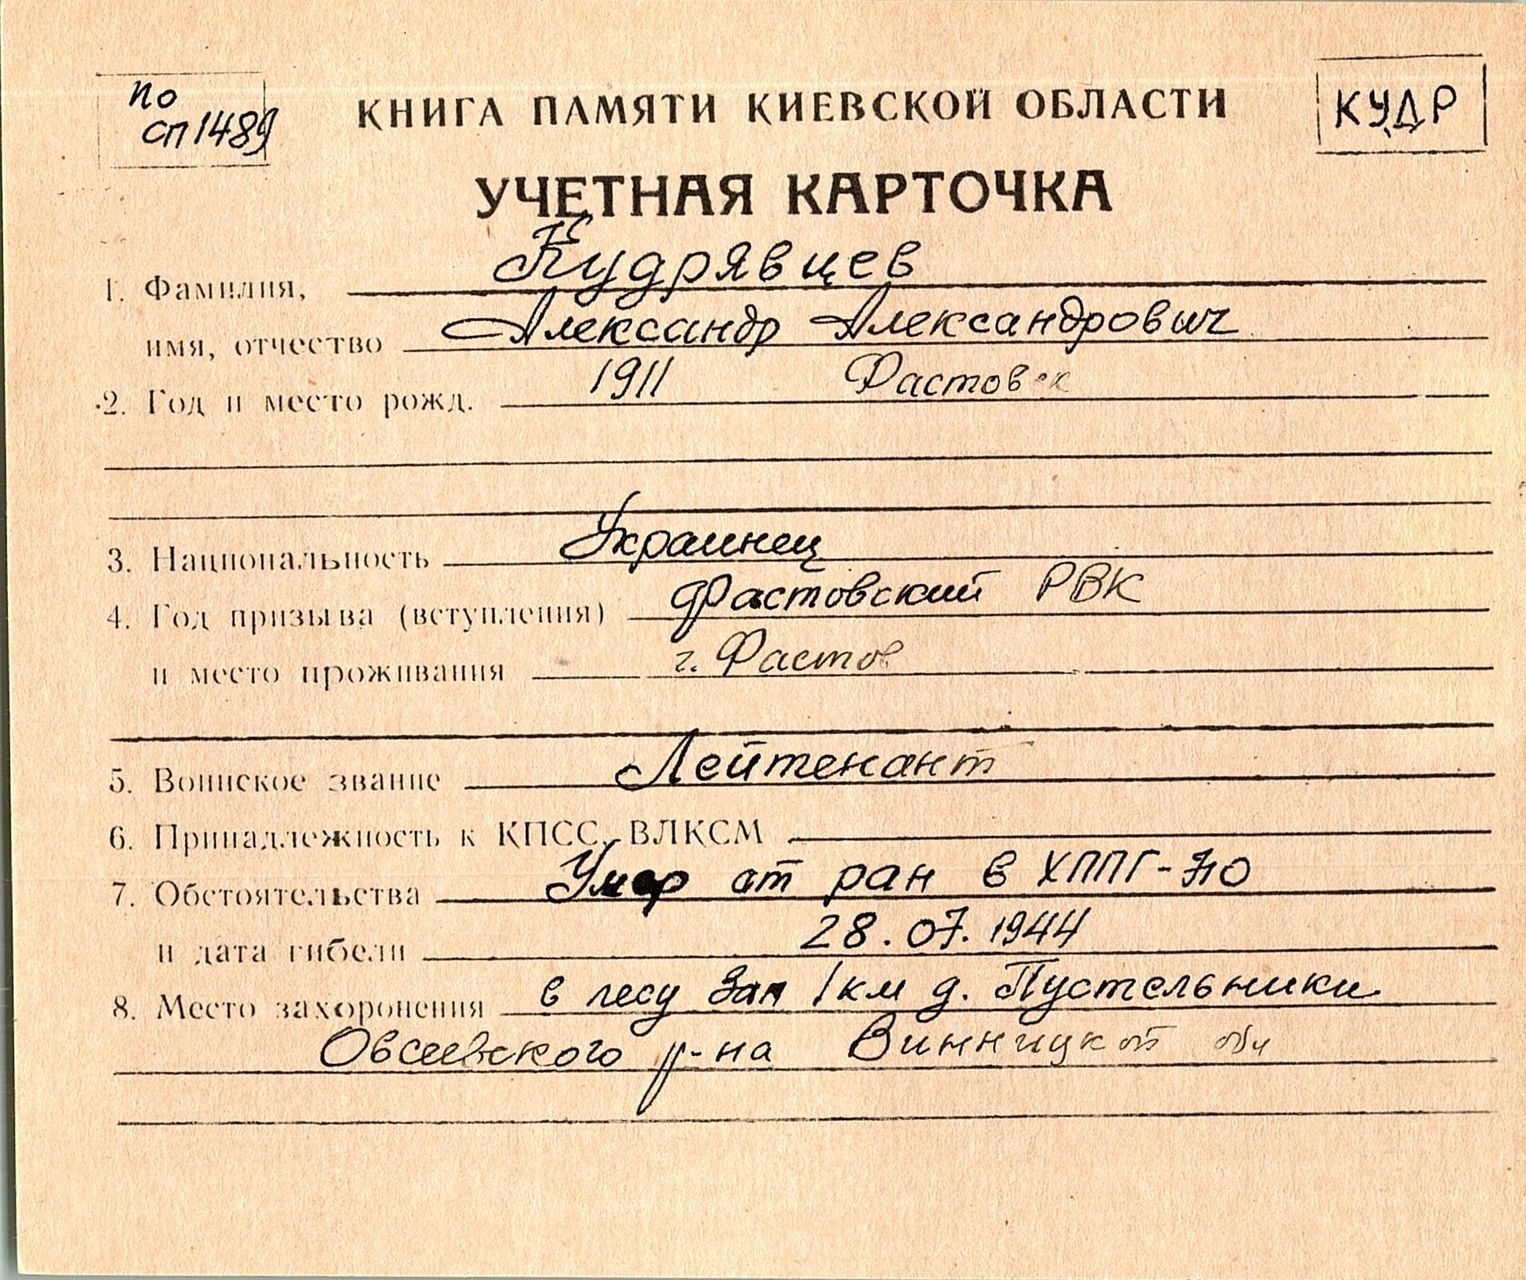 по
сп 1489
КНИГА ПАМЯТИ КИЕВСКОЙ ОБЛАСТИ
КУДР
УЧЕТНАЯ КАРТОЧКА
1. Фамилия, Кудрявцев
имя, отчество Александр Александрович
2. Год и место рожд. 1911
3. Национальность Украинец
4. Год призыва (вступления) Фастовский РВК
и место проживания г. Фастов
5. Воинское звание Лейтенант
6. Принадлежность к КПСС, ВЛКСМ
7. Обстоятельства Умер от ран в ХППГ-710
и дата гибели 28.07.1944
8. Место захоронения в лесу зап 1 км д. Пустельники
р-на Винницкой